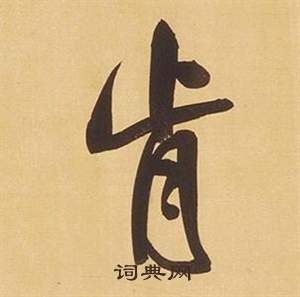 肯
词典网